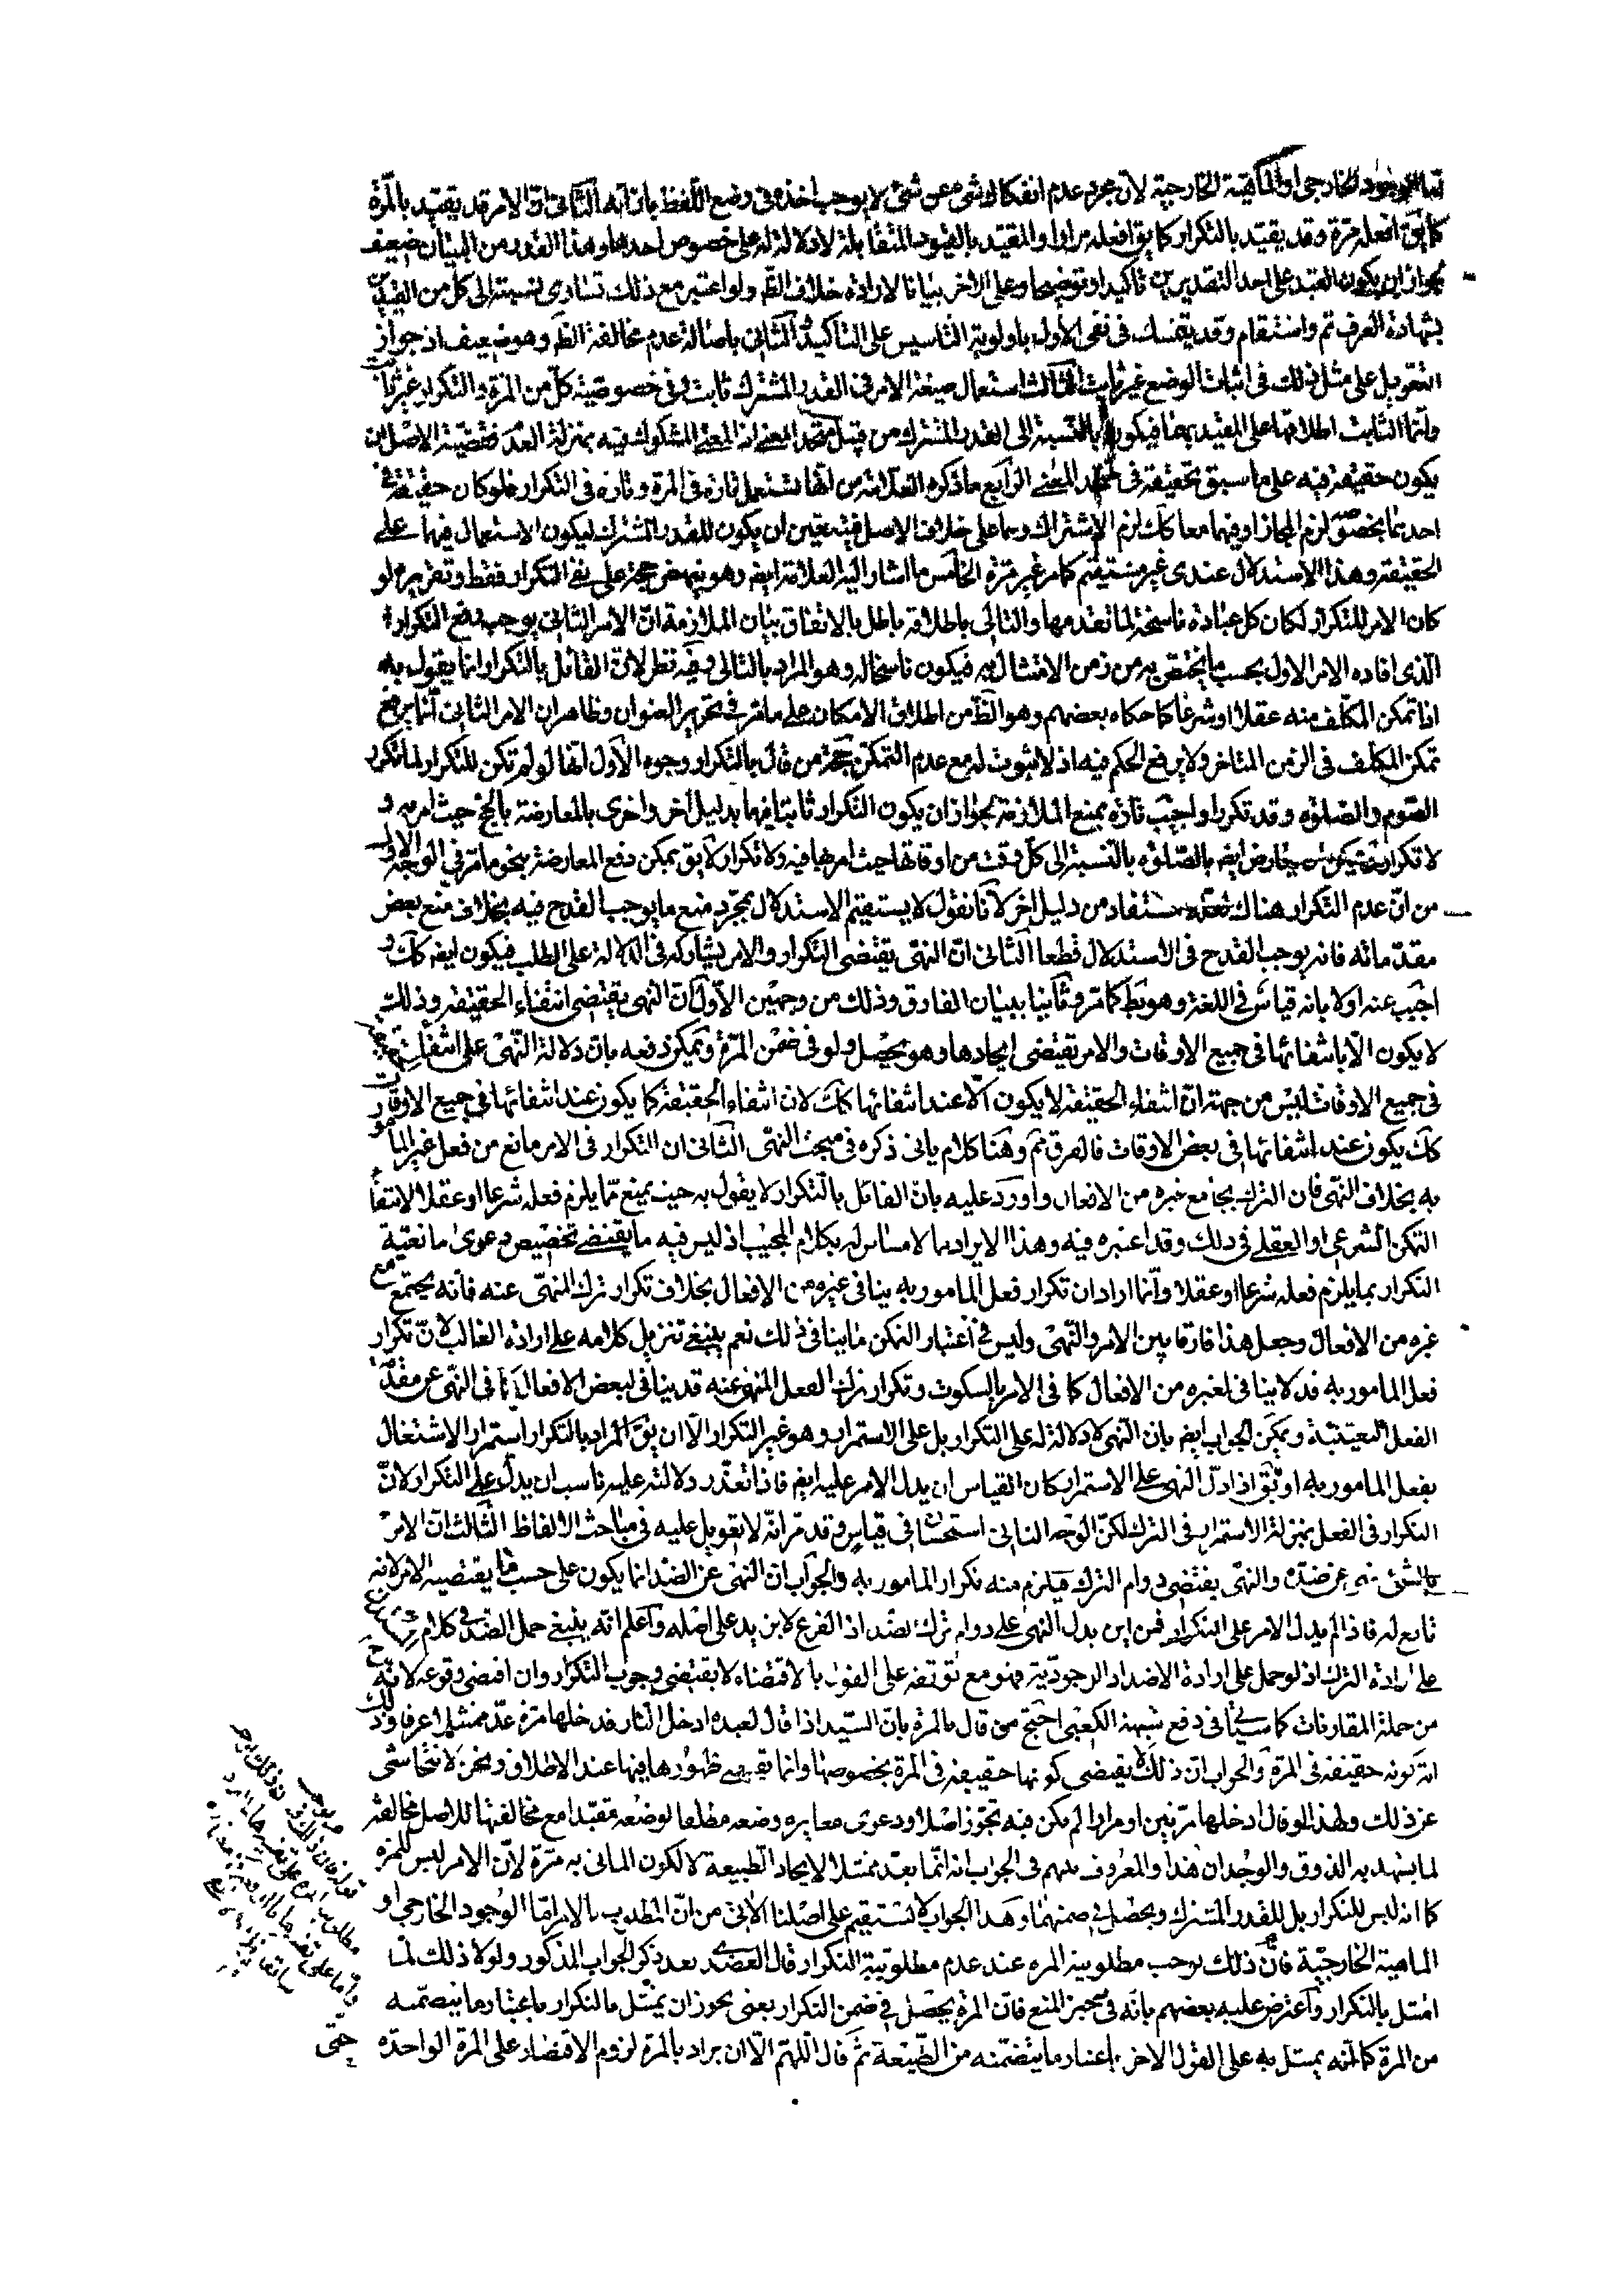 الوجود الخارجى او الماهية الخارجية لان مجرد عدم انفكاك شئ عن شئ لا يوجب اخذه فى وضع اللفظ بازائه الثانى ان الامر قد يقيد بالمرة
كما يق افعله مرة وقد يقيد بالتكرار كما يق افعله مرارا والمقيد بالقيود المتقابلة لا دلالة له على خصوص احدها وهذا القدر من البيان ضعيف
لجواز ان يكون القيد على احد التقديرين تاكيدا وتوضيحا وعلى الاخر بيانا لارادة خلاف الظ ولو اعتبر مع ذلك تساوى نسبته الى كل من القيدين
بشهادة العرف تم واستقام وقد يتمسك فى نفى الاول باولوية التاسيس على التاكيد والثانى باصالة عدم مخالفة الظ وهو ضعيف اذ جواز
التعويل على مثل ذلك فى اثبات الوضع غير ثابت الثالث استعمال صيغة الامر فى القدر المشترك ثابت وفى خصوصية كل من المرة والتكرار غير ثابت
وانما الثابت اطلاقها على المقيد بهما فيكون بالنسبة الى القدر المشترك من قبيل متحد المعنى اذ المعنى المشكوك فيه بمنزلة العدم فقضية الاصل ان
يكون حقيقة فيه على ما سبق تحقيقه فى متحد المعنى الرابع ما ذكره العلامة من انها تستعمل تارة فى المرة وتارة فى التكرار فلو كان حقيقة فى
احدهما بخصوصه لزم المجاز او فيهما معا كك لزم الاشتراك وهما على خلاف الاصل فيتعين ان يكون للقدر المشترك ليكون الاستعمال فيهما على
الحقيقة وهذا الاستدلال عندى غير مستقيم كما مر غير مرة الخامس ما اشار اليه العلامة ايضا وهو ينهض حجة على نفى التكرار فقط وتقريره لو
كان الامر للتكرار لكان كل عبادة ناسخة لما تقدمها والتالى باطلاقه باطل بالاتفاق بيان الملازمة ان الامر الثانى يوجب رفع التكرار
الذى افاده الامر الاول بحسب ما يختص به من زمن الامتثال به فيكون ناسخا له وهو المراد بالتالى وفيه نظر لان القائل بالتكرار انما يقول به
اذا تمكن المكلف منه عقلا او شرعا كما حكاه بعضهم وهو الظ من اطلاق الامكان على ما مر فى تحرير العنوان وظاهر ان الامر الثانى انما يرفع
تمكن المكلف فى الزمن المتاخر ولا يرفع الحكم فيه اذ لا ثبوت له مع عدم التمكن حجة من قال بالتكرار وجوه الاول انها لو لم تكن للتكرار لما تكرر
الصوم والصلوة وقد تكررا واجيب تارة بمنع الملازمة لجواز ان يكون التكرار ثابتا فيهما بدليل اخر واخرى بالمعارضة بالحج حيث امر به و
لا تكرار فيه وعورض ايضا بالصلوة بالنسبة الى كل وقت من اوقاتها حيث امر بها فيه ولا تكرار لا يق يمكن دفع المعارضة بنحو ما مر فى الوجه الاول
من ان عدم التكرار هناك مستفاد من دليل اخر لانا نقول لا يستقيم الاستدلال بمجرد منع ما يوجب القدح فيه بخلاف منع بعض
مقدماته فانه يوجب القدح فى الاستدلال قطعا الثانى ان النهى يقتضى التكرار والامر يشاركه فى الدلالة على الطلب فيكون ايضا كك و
اجيب عنه اولا بانه قياس فى اللغة وهو بط كما مر وثانيا ببيان الفارق وذلك من وجهين الاول ان النهى يقتضى انتفاء الحقيقة وذلك
لا يكون الا بانتفائها فى جميع الاوقات والامر يقتضى ايجادها وهو يحصل ولو فى ضمن المرة ويمكن دفعه بان دلالة النهى على انتفاء الحقيقة
فى جميع الاوقات ليس من جهة ان انتفاء الحقيقة لا يكون الا عند انتفائها كك لان انتفاء الحقيقة كما يكون عند انتفائها فى جميع الاوقات
كك يكون عند انتفائها فى بعض الاوقات فالفرق تم وهنا كلام ياتى ذكره فى مبحث النهى الثانى ان التكرار فى الامر مانع من فعل غير المامور
به بخلاف النهى فان الترك يجامع غيره من الافعال واورد عليه بان القائل بالتكرار لا يقول به حيث يمنع مما يلزم فعله شرعا او عقلا لانتفاء
التمكن الشرعى او العقلى فى ذلك وقد اعتبره فيه وهذا الايراد مما لا مساس له بكلام المجيب اذ ليس فيه ما يقتضى تخصيص دعوى مانعية
التكرار بما يلزم فعله شرعا او عقلا وانما اراد ان تكرار فعل المامور به ينافى غيره من الافعال بخلاف تكرار ترك المنهى عنه فانه يجتمع مع
غيره من الافعال وجعل هذا فارقا بين الامر والنهى وليس فى اعتبار التمكن ما ينافى ذلك نعم ينبغى تنزيل كلامه على ارادة الغالب لان تكرار
فعل المامور به قد لا ينافى لغيره من الافعال كما فى الامر بالسكوت وتكرار ترك الفعل المنهى عنه قد ينافى لبعض الافعال كما فى النهى عن مقدمات
الفعل ويمكن الجواب ايضا بان النهى لا دلالة له على التكرار بل على الاستمرار وهو غير التكرار الا ان يق المراد بالتكرار استمرار الاشتغال
بفعل المامور به او يق اذا دل النهى على الاستمرار كان القياس ان يدل الامر عليه ايضا فاذا تعذر دلالته عليه ناسب ان يدل على التكرار لان
التكرار فى الفعل بمنزلة الاستمرار فى الترك لكن الوجه الثانى استحسان فى قياس وقد مر انه لا تعويل عليه فى مباحث الالفاظ الثالث ان الامر
بالشئ نهى عن ضده والنهى يقتضى دوام الترك فيلزم منه تكرار المامور به والجواب ان النهى عن الضد انما يكون على حسب ما يقتضيه الامر لانه
تابع له فاذا لم يدل الامر على التكرار فمن اين يدل النهى على دوام ترك الضد اذ الفرع لا يزيد على اصله واعلم انه ينبغى حمل الضد فى كلام
على ارادة الترك اذ لو حمل على ارادة الاضداد الوجودية فهو مع توقفه على القول بالاقتضاء لا يقتضى وجوب التكرار وان اقتضى وقوعه لانه
من جملة المقارنات كما سياتى فى دفع شبهة الكعبى احتج من قال بالمرة بان السيد اذا قال لعبده ادخل الدار فدخلها مرة عد ممتثلا عرفا وذلك
اية كونه حقيقة فى المرة والجواب ان ذلك لا يقتضى كونها حقيقة فى المرة بخصوصها وانما يقتضى ظهورها فيها عند الاطلاق ونحن لا نتحاشى
عن ذلك ولهذا لو قال ادخلها مرتين او مرارا لم يكن فيه تجوز اصلا ودعوى مغايرة وضعه مطلقا لوضعه مقيدا مع مخالفتها للاصل مخالفة
لما يشهد به الذوق والوجدان هذا والمعروف بينهم فى الجواب انه انما يعد ممتثلا لايجاد الطبيعة لا لكون الماتى به مرة لان الامر ليس للمرة
كما انه ليس للتكرار بل للقدر المشترك ويحصل فى ضمنهما وهذا الجواب لا يستقيم على اصلنا الاتى من ان المطلوب بالامر اما الوجود الخارجى او
الماهية الخارجية فان ذلك يوجب مطلوبية المرة عند عدم مطلوبية التكرار قال العضدى بعد ذكر الجواب المذكور ولولا ذلك لما
امتثل بالتكرار واعترض عليه بعضهم بانه فى حيز المنع فان المرة يحصل فى ضمن التكرار يعنى يجوز ان يمتثل بالتكرار باعتبار ما يتضمنه
من المرة كما انه يمتثل به على القول الاخر باعتبار ما يتضمنه من الطبيعة ثم قال اللهم الا ان يراد بالمرة لزوم الاقتصار على المرة الواحدة
حتى